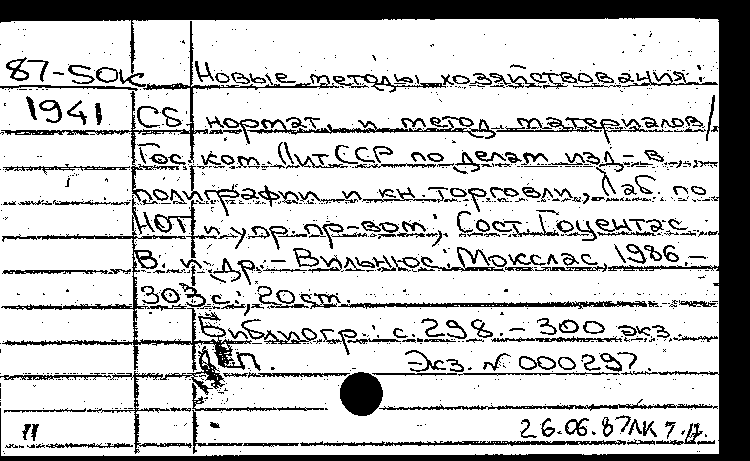 87-50К Новые методы хозяйствования:
1941 Сб. нормат. и метод. материалов/
Гос. ком. Лит ССР по делам изд-в,
полиграфии и кн. торговли, Лаб. по
НОТ и упр. пр-вом; Сост. Гоцентас
В. и др. – Вильнюс: Мокслас, 1986. –
303 с.; 20 см.
Библиогр.: с. 298. – 300 экз.
П. Экз. N 000297.
11 26.06.87 ЛК